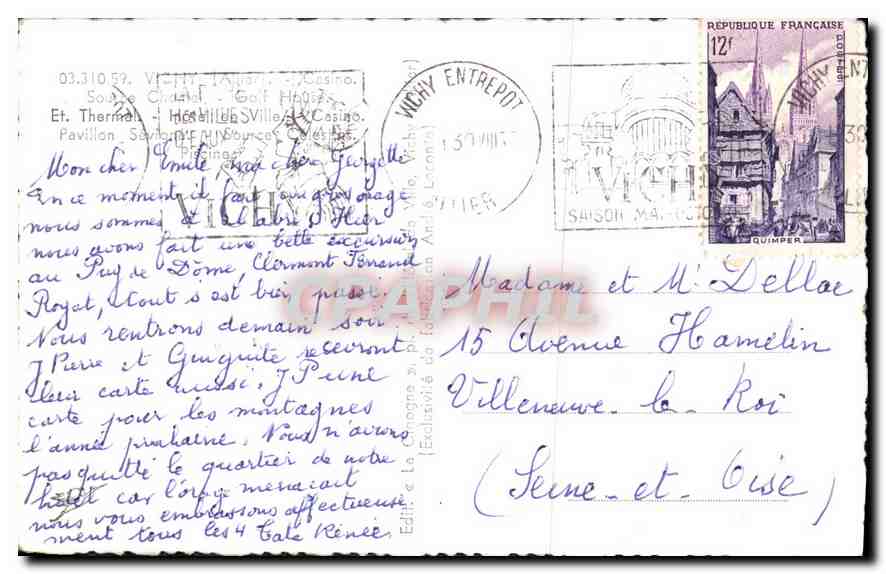 03.310.59. VICHY (Allier). - Casino.
Source Chomel - Golf House
Et. Thermal - Hôtel de Ville - Casino.
Pavillon Sévigné - Source Célestins
Piscine
Mon cher Emile, ma chère Georgette
En ce moment il fait un gros orage
nous sommes à l'abri. Hier
nous avons fait une belle excursion
au Puy de Dôme, Clermont Ferrand
Royat, tout s'est bien passé.
Nous rentrons demain soir
J Pierre et Guiguite recevront
leur carte aussi, J P une
carte pour les montagnes
l'année prochaine. Nous n'avons
pas quitté le quartier de notre
hôtel car l'orage menaçait
nous vous embrassons affectueuse
ment tous les 4 Tata Rénée
Edit. "La Cigogne"
(Exclusivité de fabrication André Leconte)
VICHY ENTREPOT
ALLIER
VICHY
VICHY
SAISON MAI-OCTO
VICHY ENT
RÉPUBLIQUE FRANÇAISE
12f
POSTES
QUIMPER
CPAPHIL
Madame et Mr Dellac
15 Avenue Hamelin
Villeneuve-le-Roi
(Seine-et-Oise)